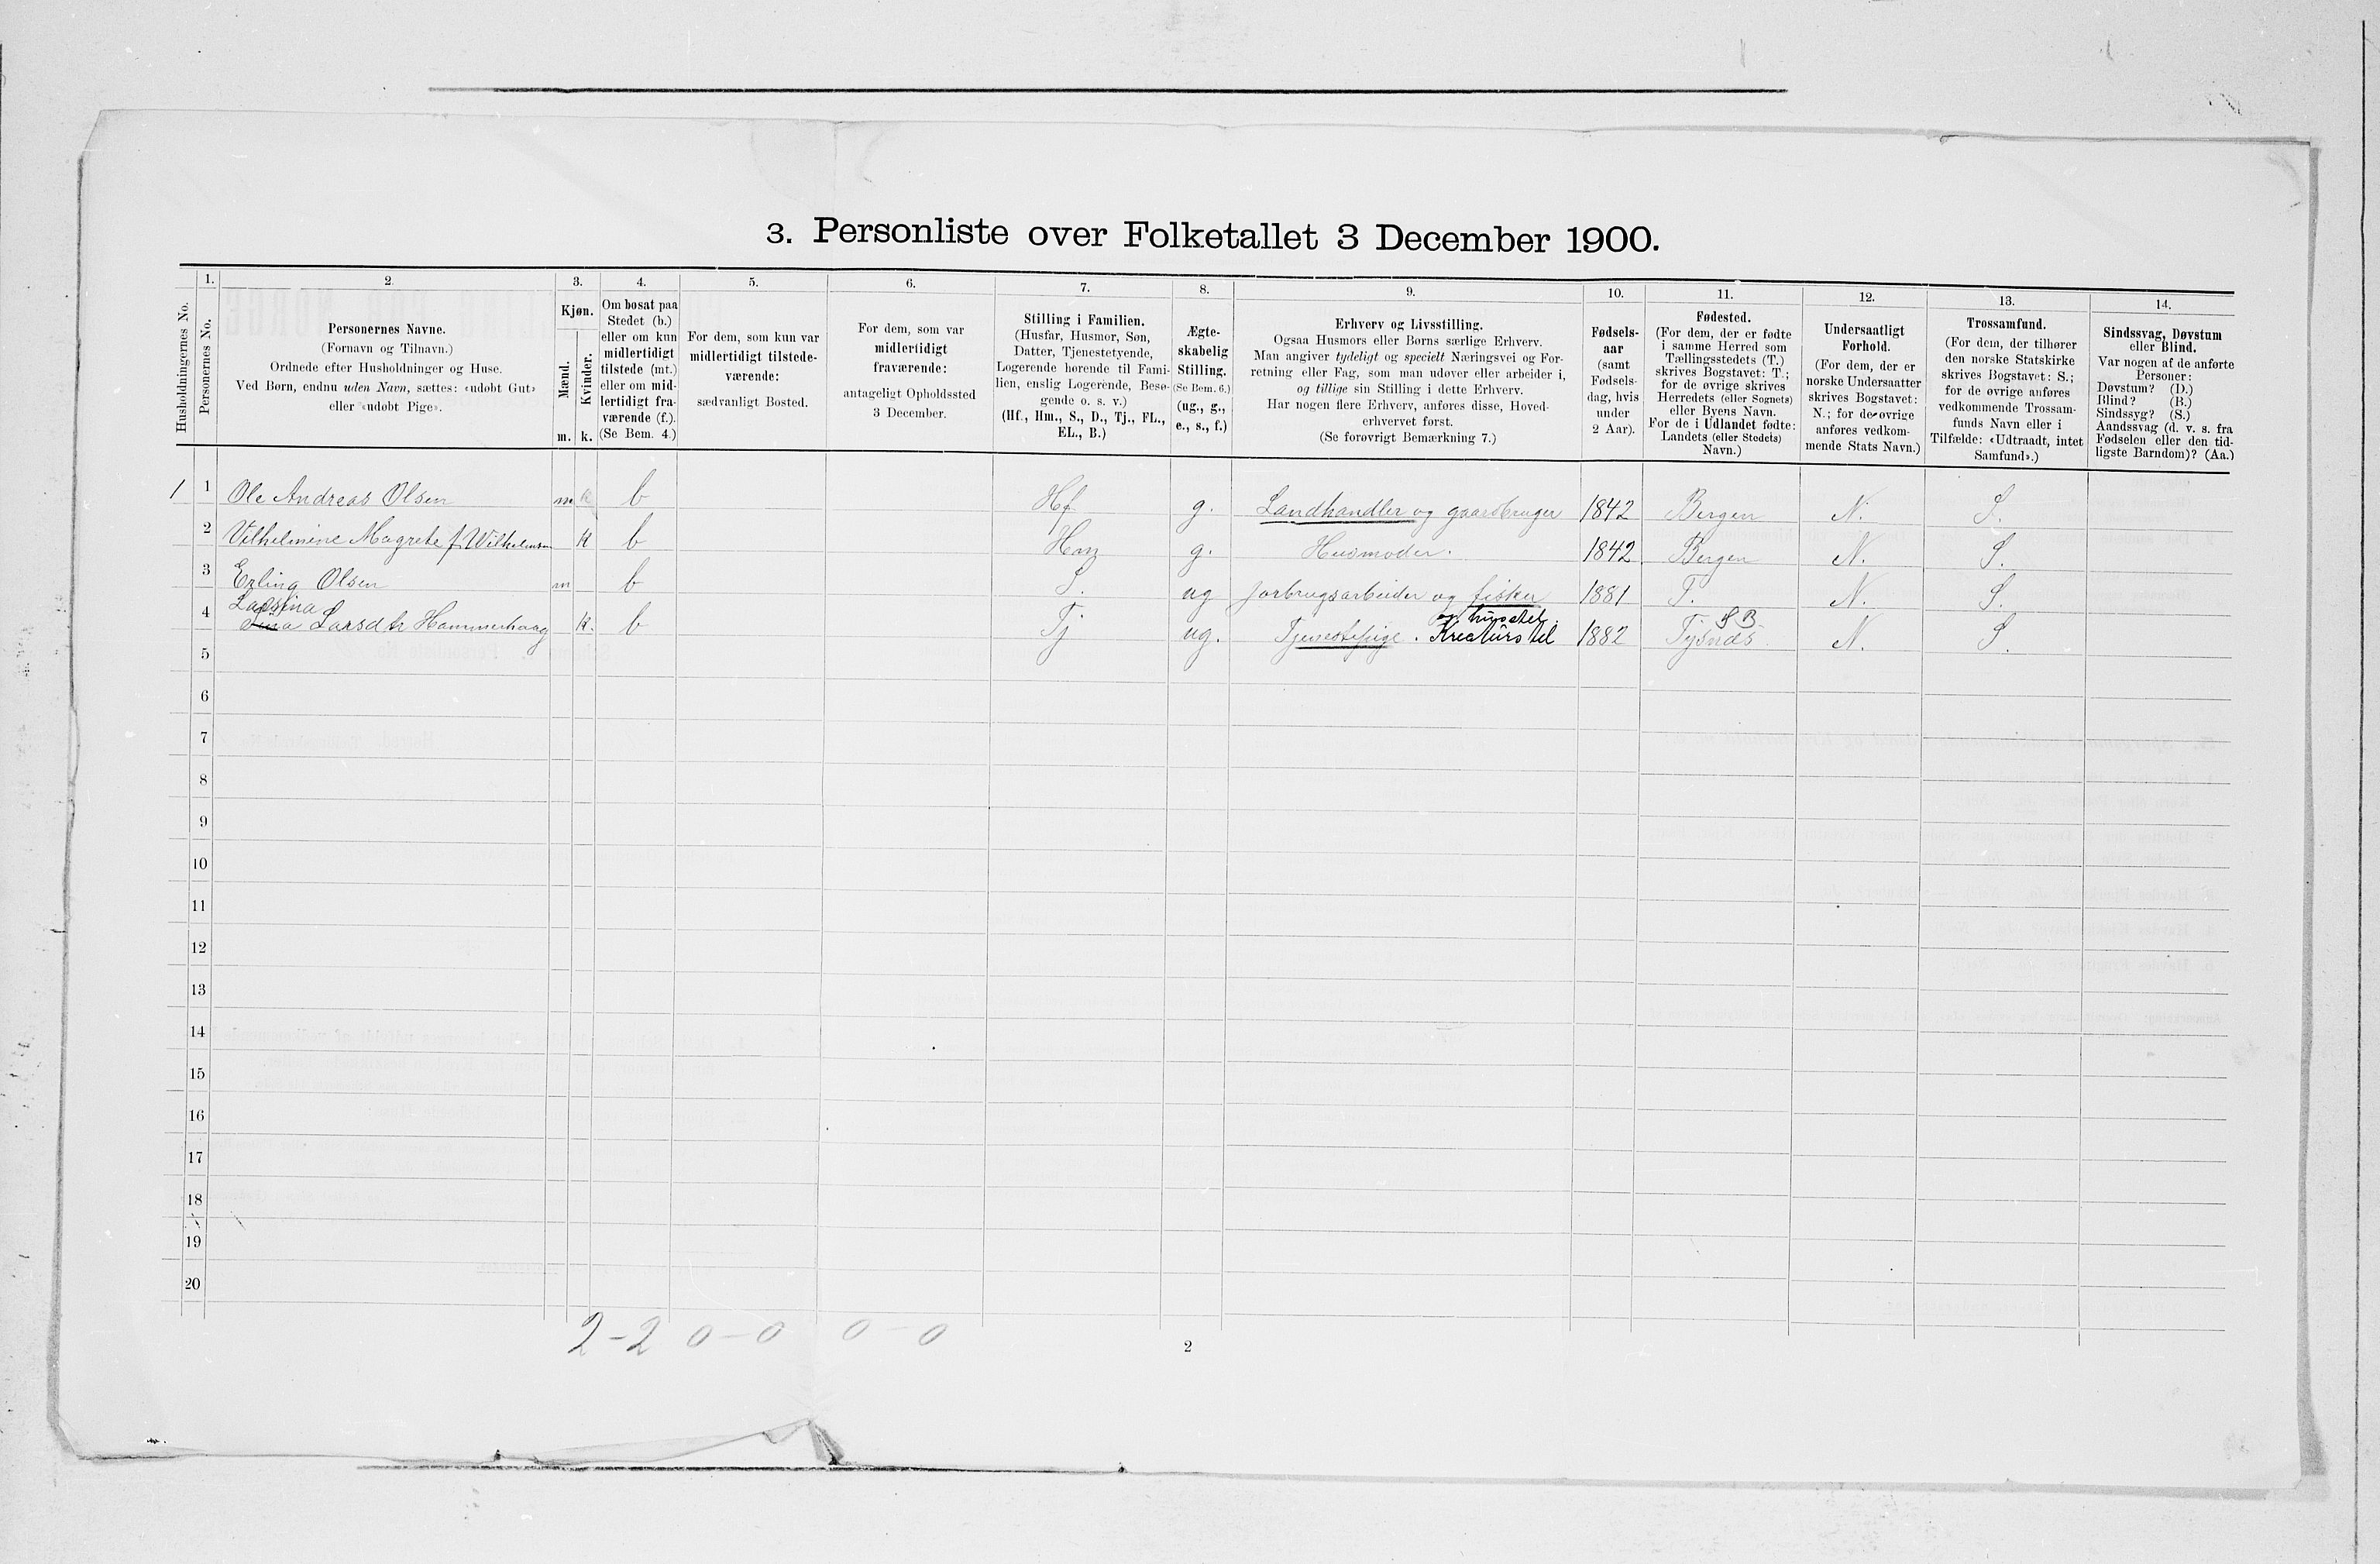 3. Personliste over Folketallet 3 December 1900.
Husholdningernes No.
1.
Personernes No.
2.
Personernes Navne.
(Fornavn og Tilnavn.)
Ordnede efter Husholdninger og Huse.
Ved Børn, endnu uden Navn, sættes: «udøbt Gut»
eller «udøbt Pige».
3.
Kjøn.
Mænd.
m.
Kvinder.
k.
4.
Om bosat paa
Stedet (b.)
eller om kun
midlertidigt
tilstede (mt.)
eller om mid-
lertidigt fra-
værende (f.).
(Se Bem. 4.)
5.
For dem, som kun var
midlertidigt tilstede-
værende:
sædvanligt Bosted.
6.
For dem, som var
midlertidigt
fraværende:
antageligt Opholdssted
3 December.
7.
Stilling i Familien.
(Husfar, Husmor, Søn,
Datter, Tjenestetyende,
Logerende hørende til Fami-
lien, enslig Logerende, Besø-
gende o. s. v.)
(Hf., Hm., S., D., Tj., FL.,
EL., B.)
8.
Ægte-
skabelig
Stilling.
(Se Bem. 6.)
(ug., g.,
e., s., f.)
9.
Erhverv og Livsstilling.
Ogsaa Husmors eller Børns særlige Erhverv.
Man angiver tydeligt og specielt Næringsvei og For-
retning eller Fag, som man udøver eller arbeider i,
og tillige sin Stilling i dette Erhverv.
Har nogen flere Erhverv, anføres disse, Hoved-
erhvervet først.
(Se forøvrigt Bemærkning 7.)
10.
Fødsels-
aar
(samt
Fødsels-
dag, hvis
under
2 Aar).
11.
Fødested.
(For dem, der er fødte
i samme Herred som
Tællingsstedets (T.)
skrives Bogstavet: T.;
for de øvrige skrives
Herredets (eller Sognets)
eller Byens Navn.
For de i Udlandet fødte:
Landets (eller Stedets)
Navn.)
12.
Undersaatligt
Forhold.
(For dem, der er
norske Undersaatter
skrives Bogstavet:
N.; for de øvrige
anføres vedkom-
mende Stats Navn.)
13.
Trossamfund.
(For dem, der tilhører
den norske Statskirke
skrives Bogstavet: S.;
for de øvrige anføres
vedkommende Trossam-
funds Navn eller i
Tilfælde: «Udtraadt, intet
Samfund».)
14.
Sindssvag, Døvstum
eller Blind.
Var nogen af de anførte
Personer:
Døvstum? (D.)
Blind? (B.)
Sindssyg? (S.)
Aandssvag (d. v. s. fra
Fødselen eller den tid-
ligste Barndom)? (Aa.)
1 1 Ole Andreas Olsen m b Hf g. Landhandler og gaardbruger 1842 Bergen N. S.
2 Vilhelmine Magrete f. Wilhelmsen k b Hm g. Husmoder. 1842 Bergen N. S.
3 Erling Olsen m b S. ug jorbrugsarbeider og fisker 1881 T. N. S.
Larsina og husstel. S B
4 Sina Larsdtr Hammerhaug k. b Tj ug. Tjenestepige. Kreaturstel 1882 Tysnæs. N. S.
5
6
7
8
9
10
11
12
13
14
15
16
17
18
19
20
2-2 0-0 0-0
2